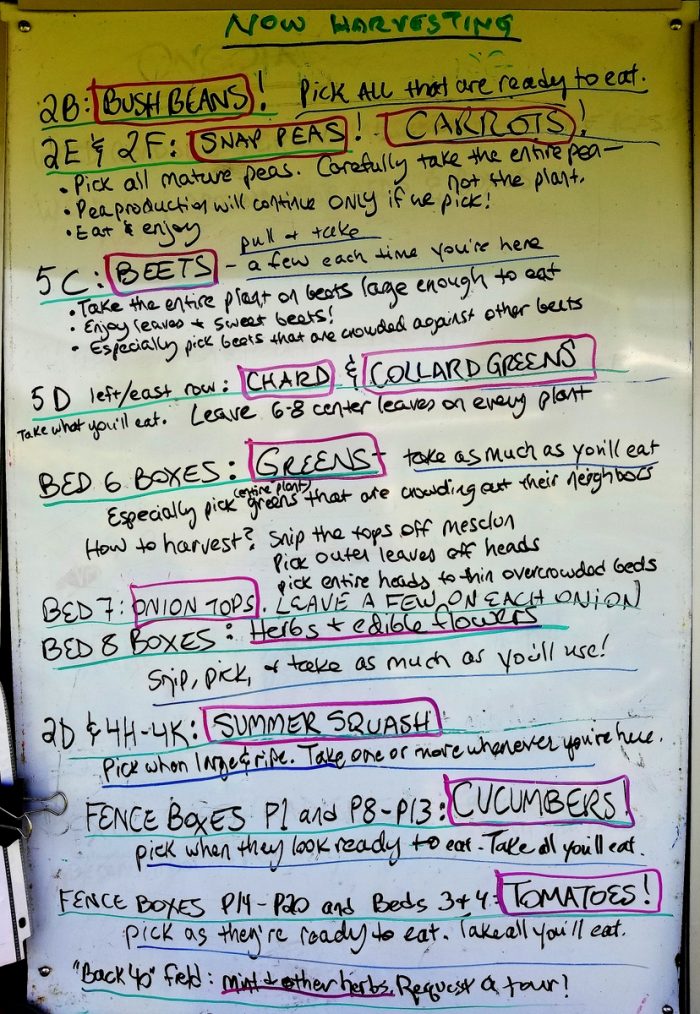 NOW HARVESTING
2B: BUSH BEANS! Pick All that are ready to eat.
2E & 2F: SNAP PEAS! CARROTS!
• Pick all mature peas. Carefully take the entire pea—
not the plant.
• Pea production will continue ONLY if we pick!
• Eat & enjoy
pull + take
5C: BEETS - a few each time you're here
• Take the entire plant on beets large enough to eat
• Enjoy leaves + sweet beets!
• Especially pick beets that are crowded against other beets
5D left/east row: CHARD & COLLARD GREENS
Take what you'll eat. Leave 6-8 center leaves on every plant
BED 6 BOXES: GREENS - take as much as you'll eat
(entire plants)
Especially pick greens that are crowding out their neighbors
How to harvest? Snip the tops off mesclun
Pick outer leaves off heads
pick entire heads to thin overcrowded beds
BED 7: ONION TOPS. LEAVE A FEW ON EACH ONION
BED 8 BOXES: Herbs + edible flowers
Snip, pick, + take as much as you'll use!
2D & 4H-4K: SUMMER SQUASH
Pick when large & ripe. Take one or more whenever you're here.
FENCE BOXES P1 and P8-P13: CUCUMBERS!
pick when they look ready to eat - Take all you'll eat.
FENCE BOXES P14-P20 and Beds 3+4: TOMATOES!
pick as they're ready to eat. Take all you'll eat.
"Back 40" field: mint + other herbs. Request a tour!